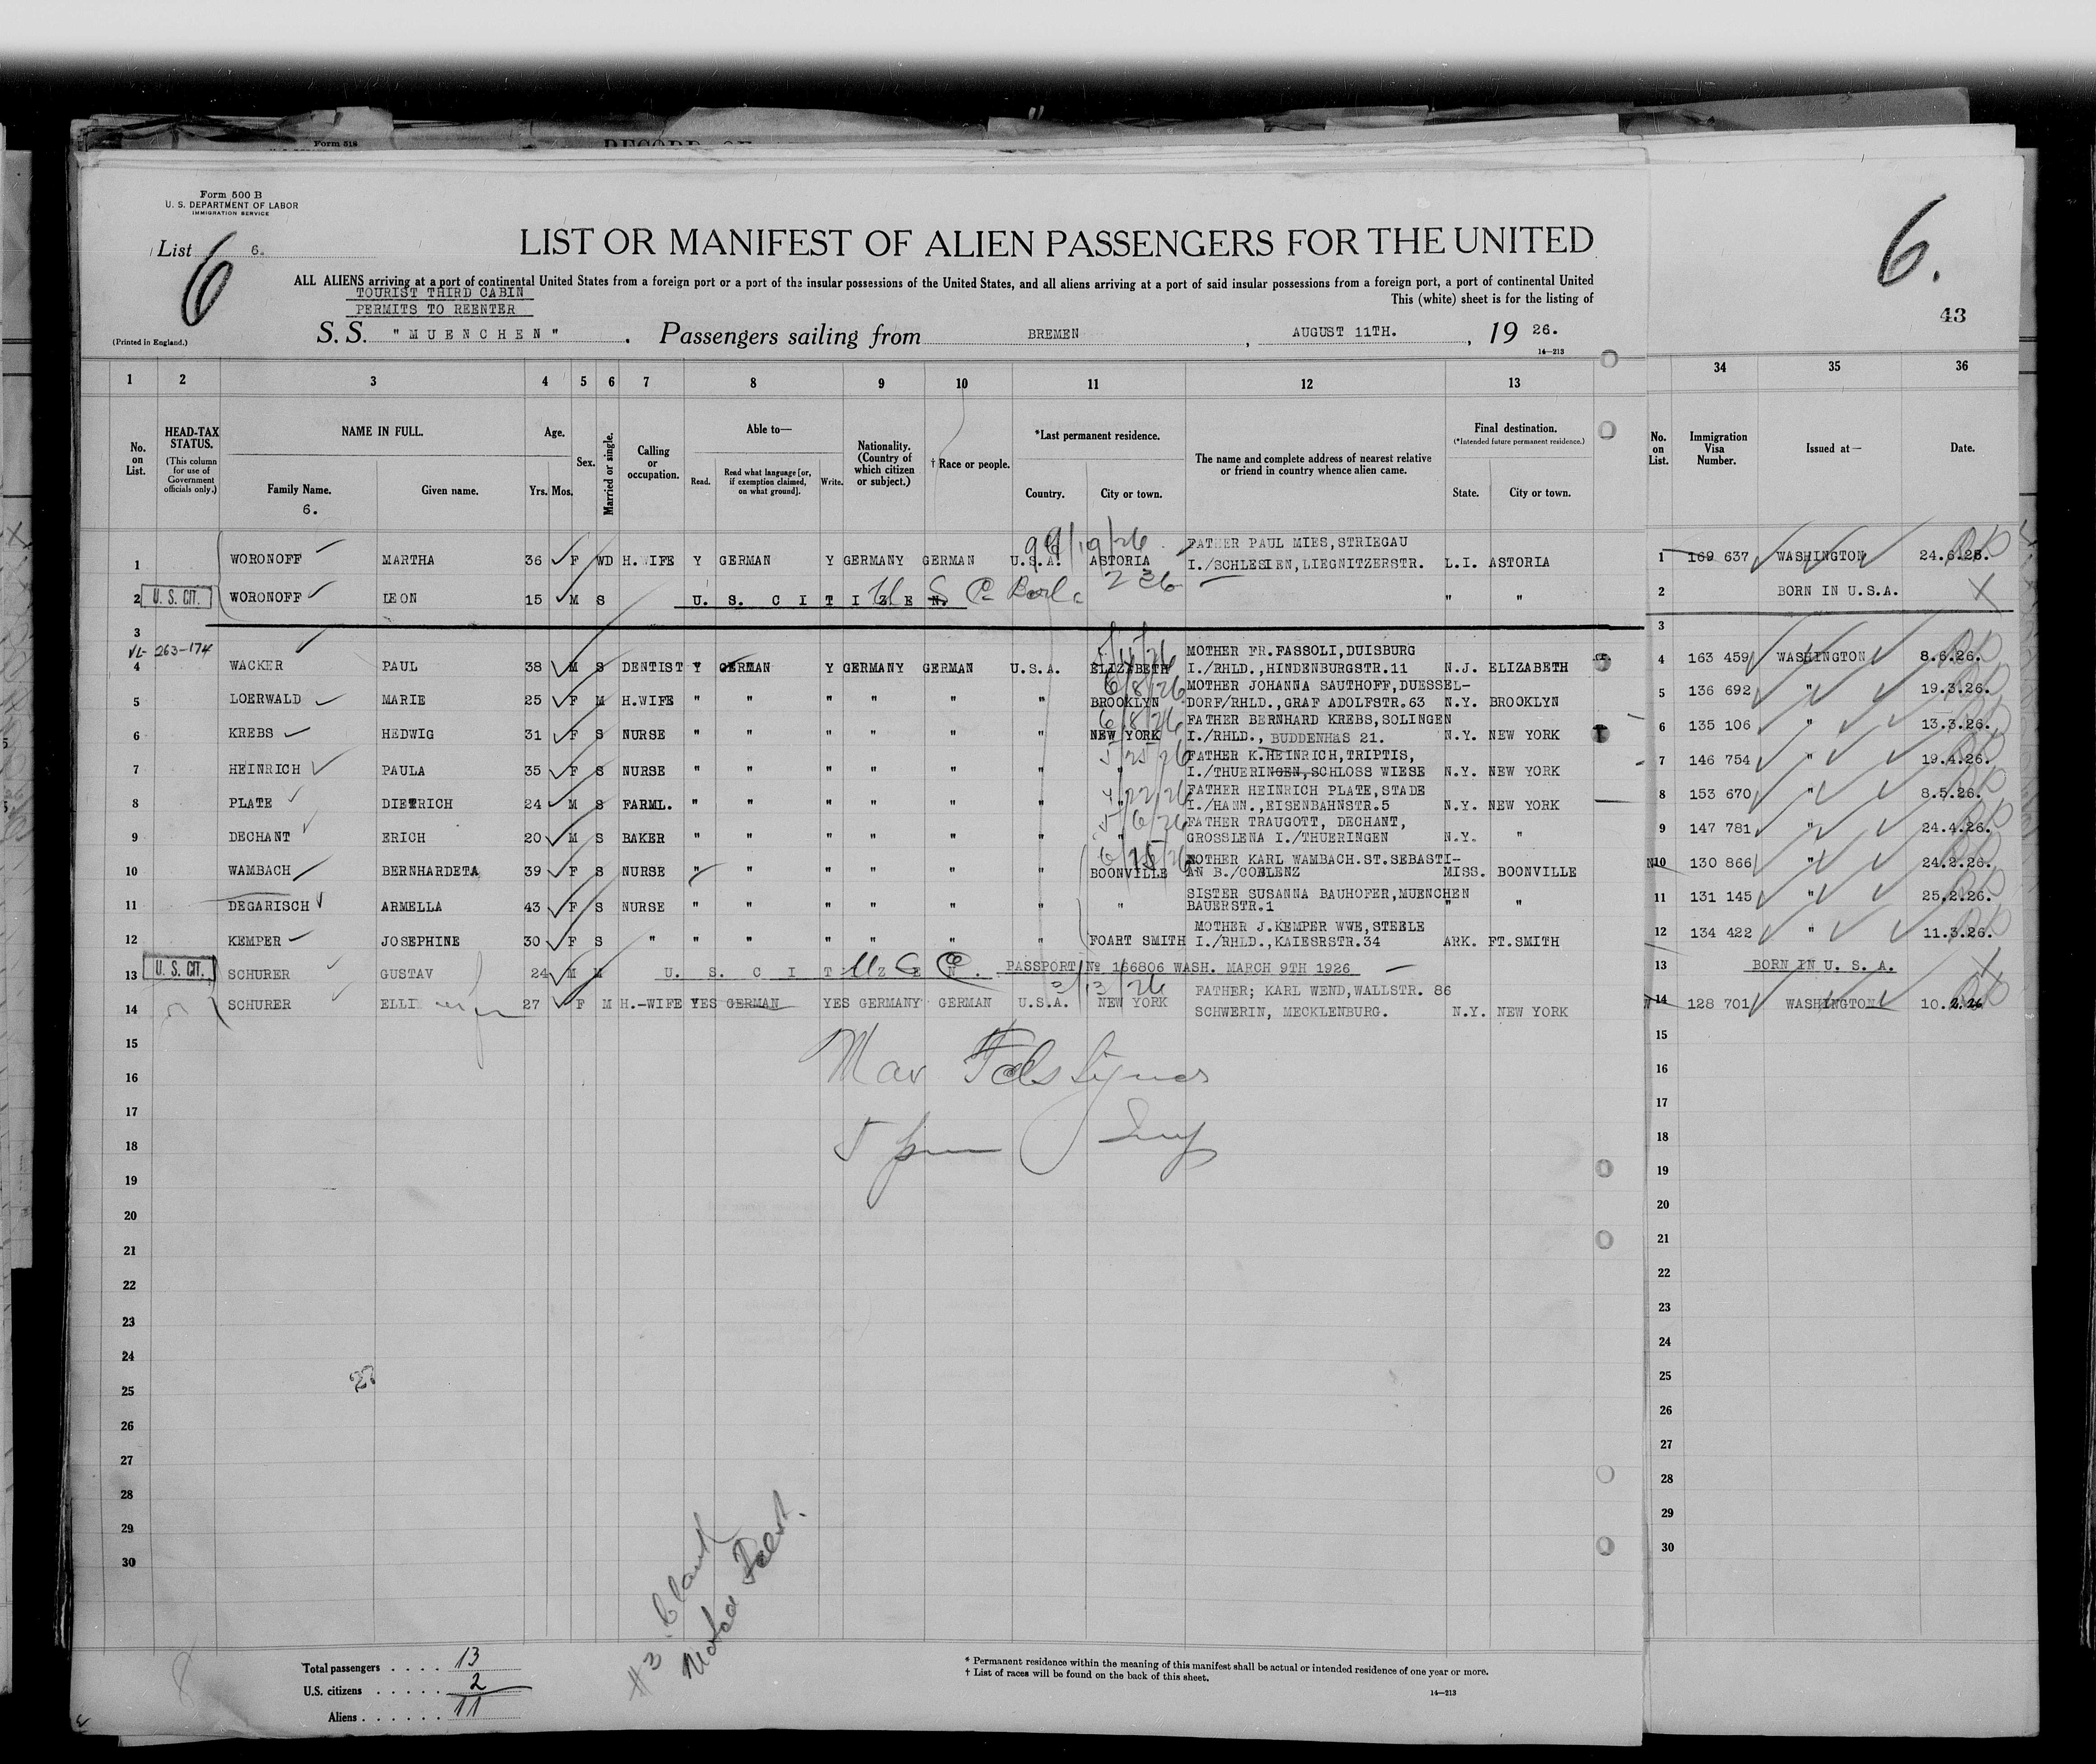 Form 500 B
U. S. DEPARTMENT OF LABOR
IMMIGRATION SERVICE
List 6.
6
LIST OR MANIFEST OF ALIEN PASSENGERS FOR THE UNITED
6.
43
ALL ALIENS arriving at a port of continental United States from a foreign port or a port of the insular possessions of the United States, and all aliens arriving at a port of said insular possessions from a foreign port, a port of continental United
TOURIST THIRD CABIN
PERMITS TO REENTER
This (white) sheet is for the listing of
(Printed in England.)
S. S. "MUENCHEN". Passengers sailing from BREMEN, AUGUST 11TH., 19 26.
14—213
1 2 3 4 5 6 7 8 9 10 11 12 13 34 35 36
No. on List.
HEAD-TAX STATUS.
(This column for use of Government officials only.)
NAME IN FULL.
Family Name.
6.
Given name.
Age.
Yrs. Mos.
Sex.
Married or single.
Calling or occupation.
Able to—
Read.
Read what language [or, if exemption claimed, on what ground].
Write.
Nationality. (Country of which citizen or subject.)
† Race or people.
*Last permanent residence.
Country.
City or town.
The name and complete address of nearest relative or friend in country whence alien came.
Final destination.
(*Intended future permanent residence.)
State.
City or town.
No. on List.
Immigration Visa Number.
Issued at—
Date.
1 WORONOFF MARTHA 36 F WD H.WIFE Y GERMAN Y GERMANY GERMAN U.S.A. ASTORIA FATHER PAUL MIES,STRIEGAU I./SCHLESIEN,LIEGNITZERSTR. L.I. ASTORIA 1 169 637 WASHINGTON 24.6.26.
2 U. S. CIT. WORONOFF LEON 15 M S U. S. CITIZEN. " " 2 BORN IN U.S.A.
3 3
263-174
4 WACKER PAUL 38 M S DENTIST Y GERMAN Y GERMANY GERMAN U.S.A. ELIZABETH MOTHER FR.FASSOLI,DUISBURG I./RHLD.,HINDENBURGSTR.11 N.J. ELIZABETH 4 163 459 WASHINGTON 8.6.26.
5 LOERWALD MARIE 25 F M H.WIFE " " " " " " 6/8/26 BROOKLYN MOTHER JOHANNA SAUTHOFF,DUESSEL- DORF/RHLD.,GRAF ADOLFSTR.63 N.Y. BROOKLYN 5 136 692 " 19.3.26.
6 KREBS HEDWIG 31 F S NURSE " " " " " " 6/8/26 NEW YORK FATHER BERNHARD KREBS,SOLINGEN I./RHLD., BUDDENHAS 21. N.Y. NEW YORK 6 135 106 " 13.3.26.
7 HEINRICH PAULA 35 F S NURSE " " " " " " 5/25/26 " FATHER K.HEINRICH,TRIPTIS, I./THUERINGEN,SCHLOSS WIESE N.Y. NEW YORK 7 146 754 " 19.4.26.
8 PLATE DIETRICH 24 M S FARML. " " " " " " " FATHER HEINRICH PLATE,STADE I./HANN.,EISENBAHNSTR.5 N.Y. NEW YORK 8 153 670 " 8.5.26.
9 DECHANT ERICH 20 M S BAKER " " " " " " " FATHER TRAUGOTT, DECHANT, GROSSLENA I./THUERINGEN N.Y. " 9 147 781 " 24.4.26.
10 WAMBACH BERNHARDETA 39 F S NURSE " " " " " " BOONVILLE MOTHER KARL WAMBACH.ST.SEBASTI- AN B./COBLENZ MISS. BOONVILLE 10 130 866 " 24.2.26.
11 DEGARISCH ARMELLA 43 F S NURSE " " " " " " " SISTER SUSANNA BAUHOFER,MUENCHEN BAUERSTR.1 " " 11 131 145 " 25.2.26.
12 KEMPER JOSEPHINE 30 F S " " " " " " " FOART SMITH MOTHER J.KEMPER WWE,STEELE I./RHLD.,KAIESRSTR.34 ARK. FT.SMITH 12 134 422 " 11.3.26.
13 U. S. CIT. SCHURER GUSTAV 24 M M U. S. CITIZEN. PASSPORT No 166806 WASH. MARCH 9TH 1926 13 BORN IN U. S. A.
14 SCHURER ELLI 27 F M H.-WIFE YES GERMAN YES GERMANY GERMAN U.S.A. 3/13/26 NEW YORK FATHER; KARL WEND,WALLSTR. 86 SCHWERIN, MECKLENBURG. N.Y. NEW YORK 14 128 701 WASHINGTON 10.2.26
15 15
16 16
17 17
18 18
19 19
20 20
21 21
22 22
23 23
24 24
25 25
26 26
27 27
28 28
29 29
30 30
#3 Blank
Total passengers . . . . 13
U.S. citizens . . . . . 2
Aliens . . . . . . 11
* Permanent residence within the meaning of this manifest shall be actual or intended residence of one year or more.
† List of races will be found on the back of this sheet.
14—213